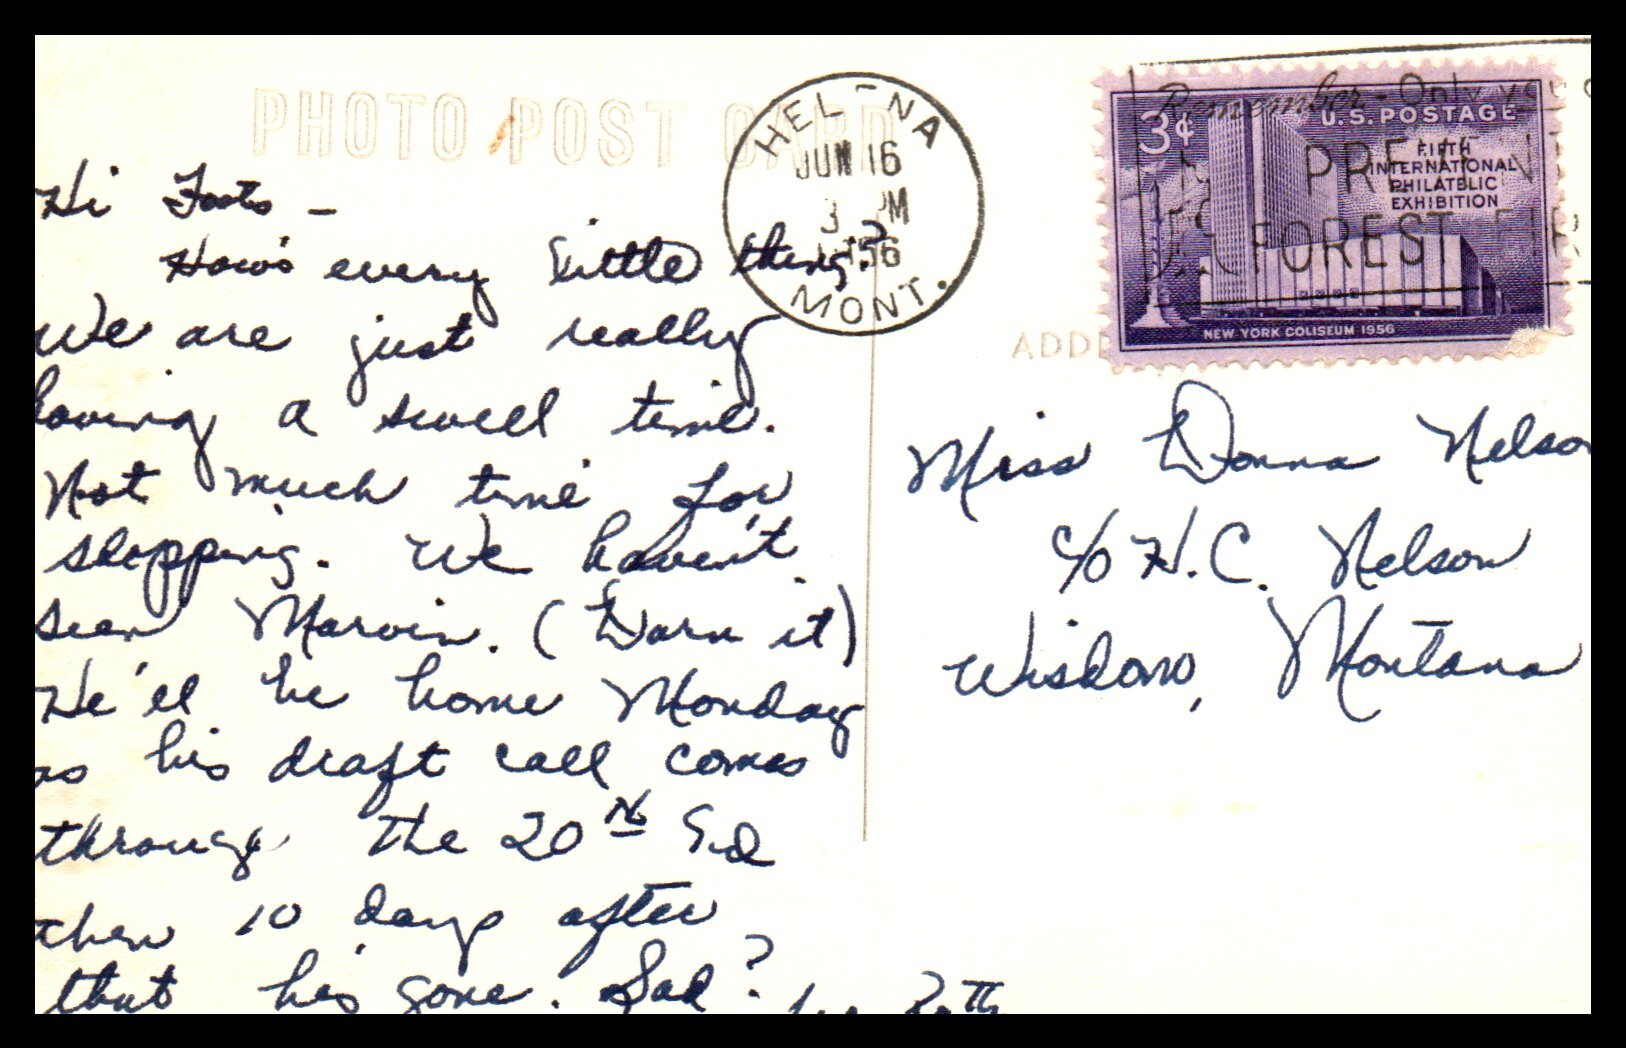 PHOTO POST CARD
HEL-NA
JUN 16
3 PM
1956
MONT.
Remember - Only you
PREVENT
FOREST FIR
3¢
U.S. POSTAGE
FIFTH
INTERNATIONAL
PHILATELIC
EXHIBITION
NEW YORK COLISEUM 1956
ADD
Hi Toots -
How's every little thing?
We are just really
having a swell time.
Not much time for
shopping. We haven't
seen Marvin. (Darn it)
He'll be home Monday
as his draft call comes
through the 20th
then 10 days after
that he's gone. Sad?
Miss Donna Nelson
c/o H.C. Nelson
Wisdom, Montana